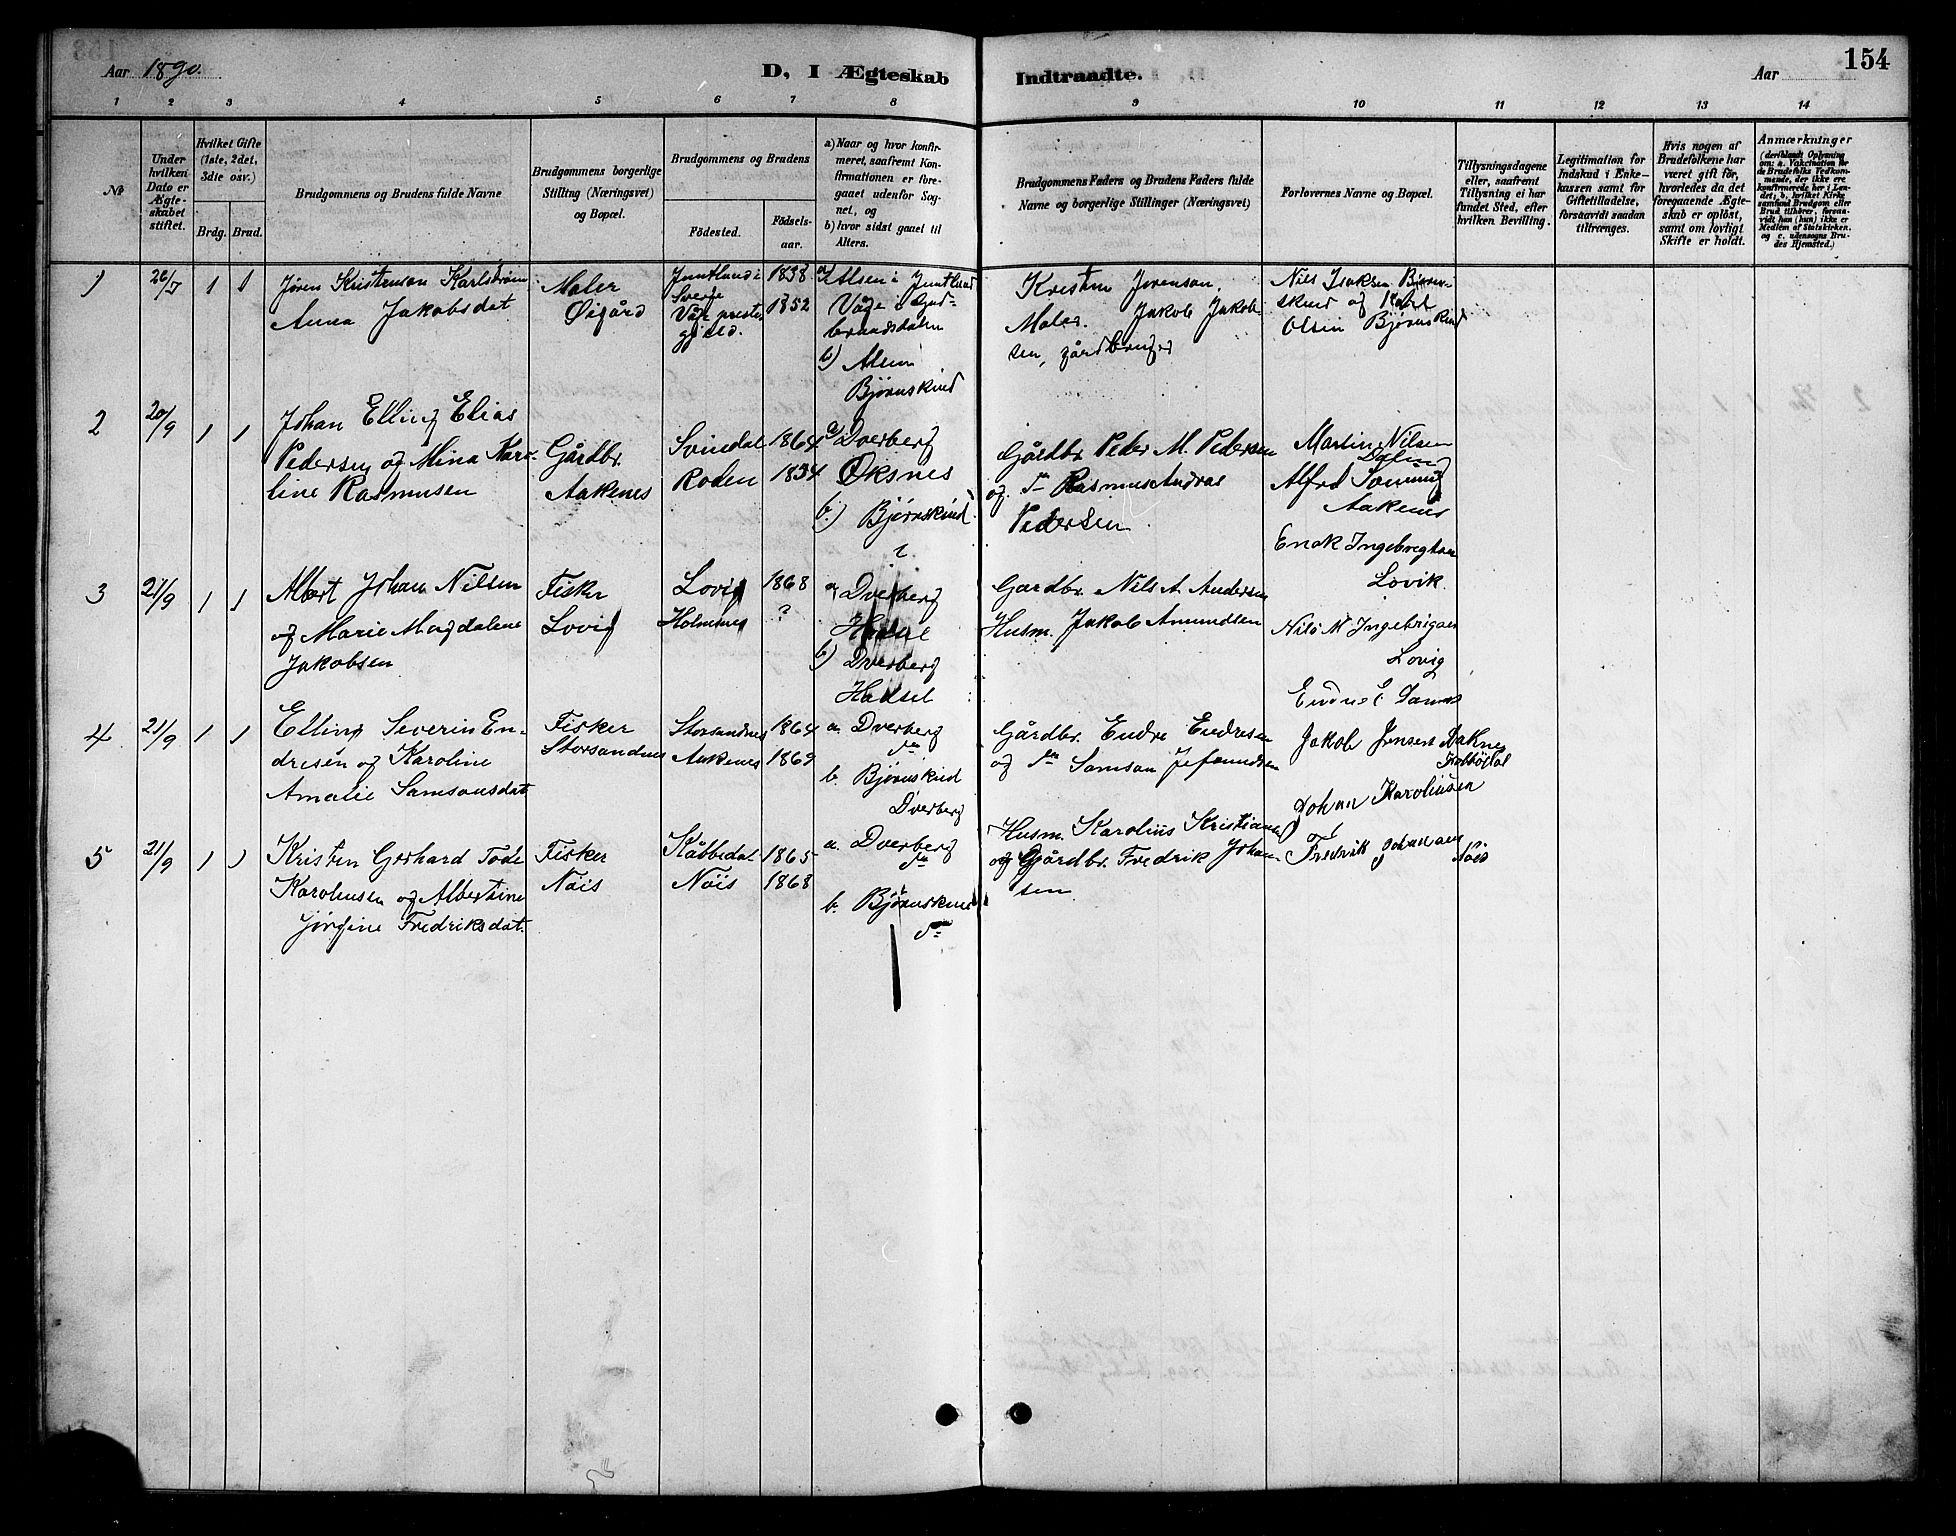 154
Aar 1890.
D, I Ægteskab Indtraadte.
Aar
1 2 3 4 5 6 7 8 9 10 11 12 13 14
No
Under hvilken Dato er Ægteskabet stiftet.
Hvilket Gifte (1ste, 2det, 3die osv.)
Brdg. Brud.
Brudgommens og Brudens fulde Navne
Brudgommens borgerlige Stilling (Næringsvei) og Bopæl.
Brudgommens og Brudens
Fødested.
Fødselsaar.
a) Naar og hvor konfirmeret, saafremt Konfirmationen er foregaaet udenfor Sognet, og
b) hvor sidst gaaet til Alters.
Brudgommens Faders og Brudens Faders fulde Navne og borgerlige Stillinger (Næringsvei)
Forlovernes Navne og Bopæl.
Tillysningsdagene eller, saafremt Tillysning ei har fundet Sted, efter hvilken Bevilling.
Legitimation for Indskud i Enkekassen samt for Giftetilladelse, forsaavidt saadan tiltrænges.
Hvis nogen af Brudefolkene har været gift før, hvorledes da det foregaaende Ægteskab er opløst, samt om lovligt Skifte er holdt.
Anmærkninger
(deriblandt Oplysning om: a. Vakcination for de Brudefolks Vedkommende, der ikke ere konfirmerede her i Landet; b. hvilket Kirkesamfund Brudgom eller Brud tilhører, forsaavidt han (hun) ikke er Medlem af Statskirken, og c. udensogns Brudes Hjemsted.)
1 26/5 1 1
Jøren Kristenson Karlstrøm
Anna Jakobsdat
Maler
Øigård
Jämtland i
Sverje
Våge preste
gjeld.
1838
1852
a) Alsen i Jämtland
Våge i Gud-
brandsdalen
b) Alsen
Bjørnskind
Kristen Jørenson,
Maler. Jakob Jakob
sen, gårdbruger
Nils Isaksen Bjørn
skind og Karl
Olsen Bjørnskind
2 20/9 1 1
Johan Elling Elias
Pedersen og Mina Karo-
line Rasmusen
Gårdbr.
Aakenes
Svindal
Roden
1864
1834
a) Dverberg
Øksnes
b) Bjørnskind
Gårdbr Peder M. Pedersen
og do Rasmus Andreas
Pedersen
Martin Nilsen
Alfred
Aakenes
3 21/9 1 1
Albert Johan Nilsen
og Marie Magdalene
Jakobsen
Fisker
Lovig
Lovig
Holmsnes
1868
?
a Dverberg
b) Dverberg
Hadsel
Gardbr Nils A. Andersen
Husm. Jakob Amundsen
Enok Ingebregtsen
Lovik
Nils M Ingebrigtsen
Lovig
4 21/9 1 1
Elling Severin En-
dresen og Karoline
Amalie Samsonsdat
Fisker
Storsandnes
Storsandnes
Aakenes
1864
1869
a. Dverberg
do
b. Bjørnskind
Dverberg
Gårdbr. Endre Endresen
og do Samson
Jakob Jensen Aaknes
5 21/9 1 1
Kristen Gerhard Tode
Karolinsen og Albertine
Jørgine Fredriksdat.
Fisker
Nöis
Kåbbedal
Nöis
1865
1868
a. Dverberg
do
b. Bjørnskind
do
Husm. Karolius Kristiansen
og Gårdbr. Fredrik Johan
sen.
Johan Karolinsen
Fredrik Johansen
Nöis